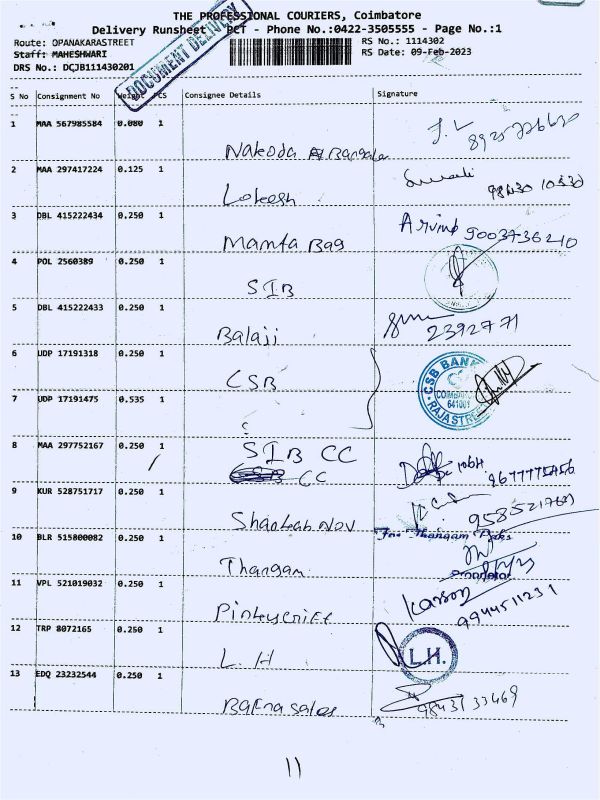 THE PROFESSIONAL COURIERS, Coimbatore
Delivery Runsheet PCT - Phone No.:0422-3505555 - Page No.:1
Route: OPANAKARASTREET RS No.: 1114302
Staff: MAHESHWARI RS Date: 09-Feb-2023
DRS No.: DCJB111430201
DOCUMENT DELIVERY
S No Consignment No Weight PCS Consignee Details Signature
1 MAA 567985584 0.080 1
Nakoda
2 MAA 297417224 0.125 1
Lokesh 98430 10530
3 DBL 415222434 0.250 1 Arvind 9003736210
Mamta Bag
4 POL 2560389 0.250 1
SIB
5 DBL 415222433 0.250 1
Balaji 2392771
6 UDP 17191318 0.250 1
CSB
CSB BANK
COIMBATORE
641001
RAJA STREET
7 UDP 17191475 0.535 1
8 MAA 297752167 0.250 1
SIB CC
CC
9677775456
9 KUR 528751717 0.250 1
Shantah Nov
10 BLR 515800082 0.250 1 For Thangam Paks
Thangam
Proprietor
11 VPL 521019032 0.250 1
Pinkuscrift
9944511231
12 TRP 8072165 0.250 1
L. H
L.H.
13 EDQ 23232544 0.250 1
Bafna sales 98431 33469
11